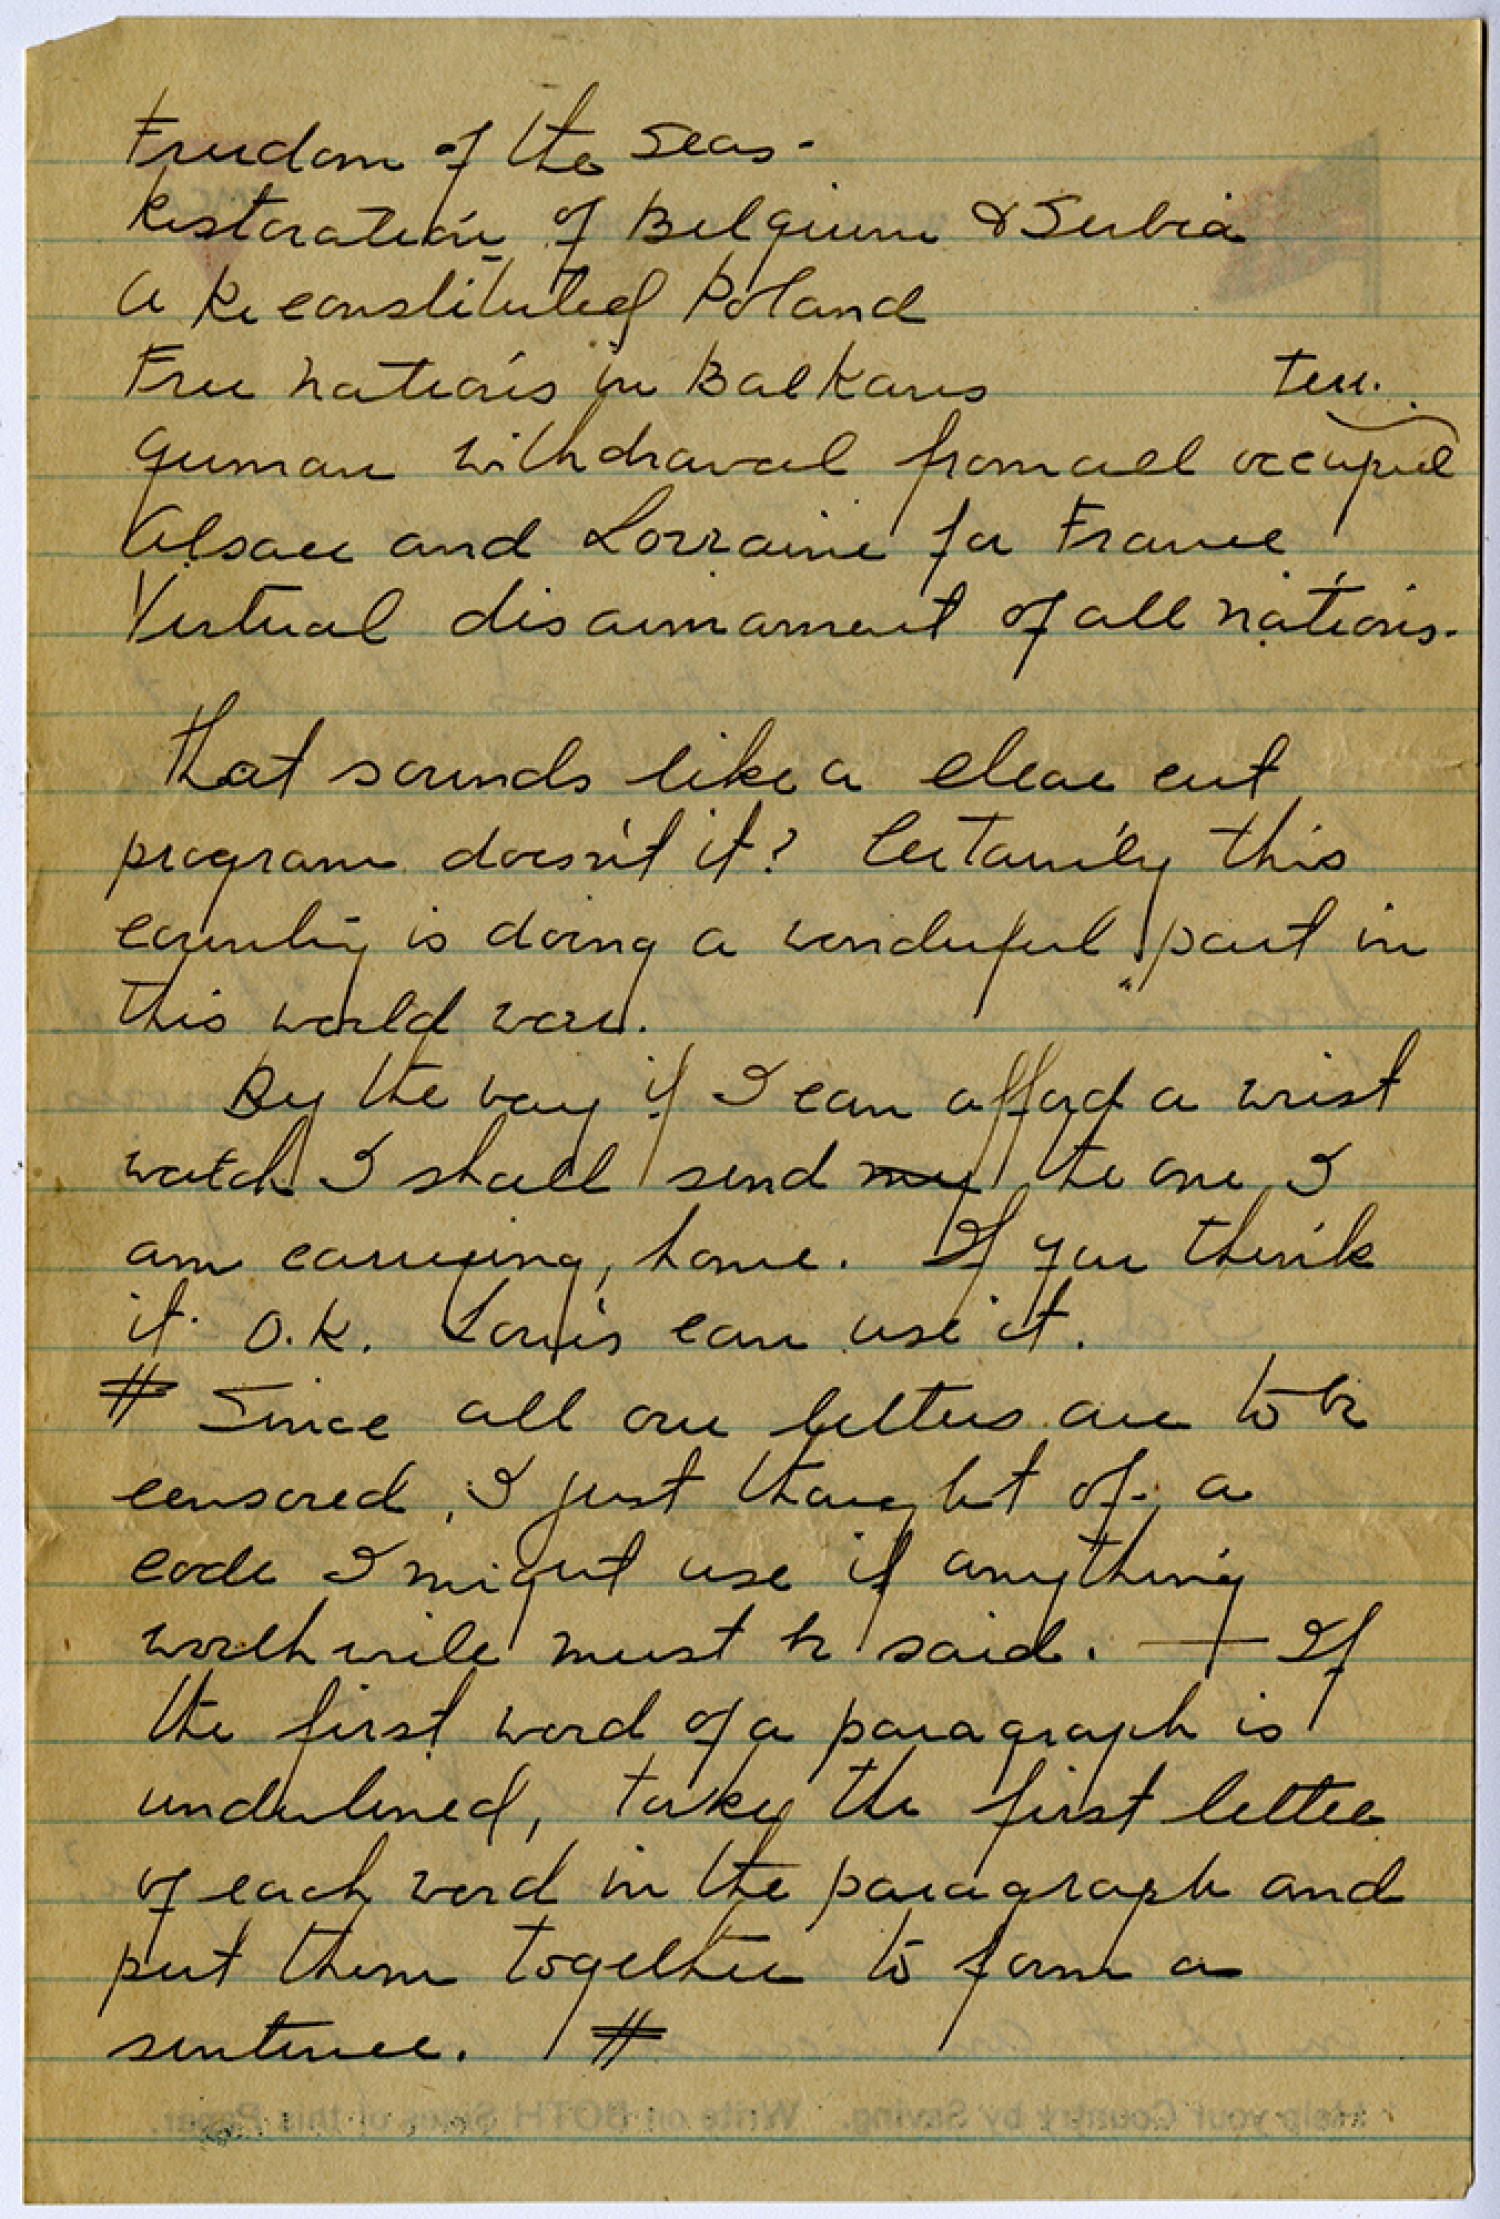 Freedom of the Seas.
Restoration of Belgium & Serbia
a Reconstituted Poland
Free nations in Balkans terr.
German withdrawal from all occupied
Alsace and Lorraine for France
Virtual disarmament of all nations.
That sounds like a clear cut
program doesn't it? Certainly this
country is doing a wonderful part in
this world war.
By the way if I can afford a wrist
watch I shall send my the one I
am carrying, home. If you think
it O.K. Louis can use it.
# Since all our letters are to be
censored, I just thought of a
code I might use if anything
worthwile must be said. — If
the first word of a paragraph is
underlined, take the first letter
of each word in the paragraph and
put them together to form a
sentence. #
Help your Country by Saving. Write on BOTH Sides of this Paper.